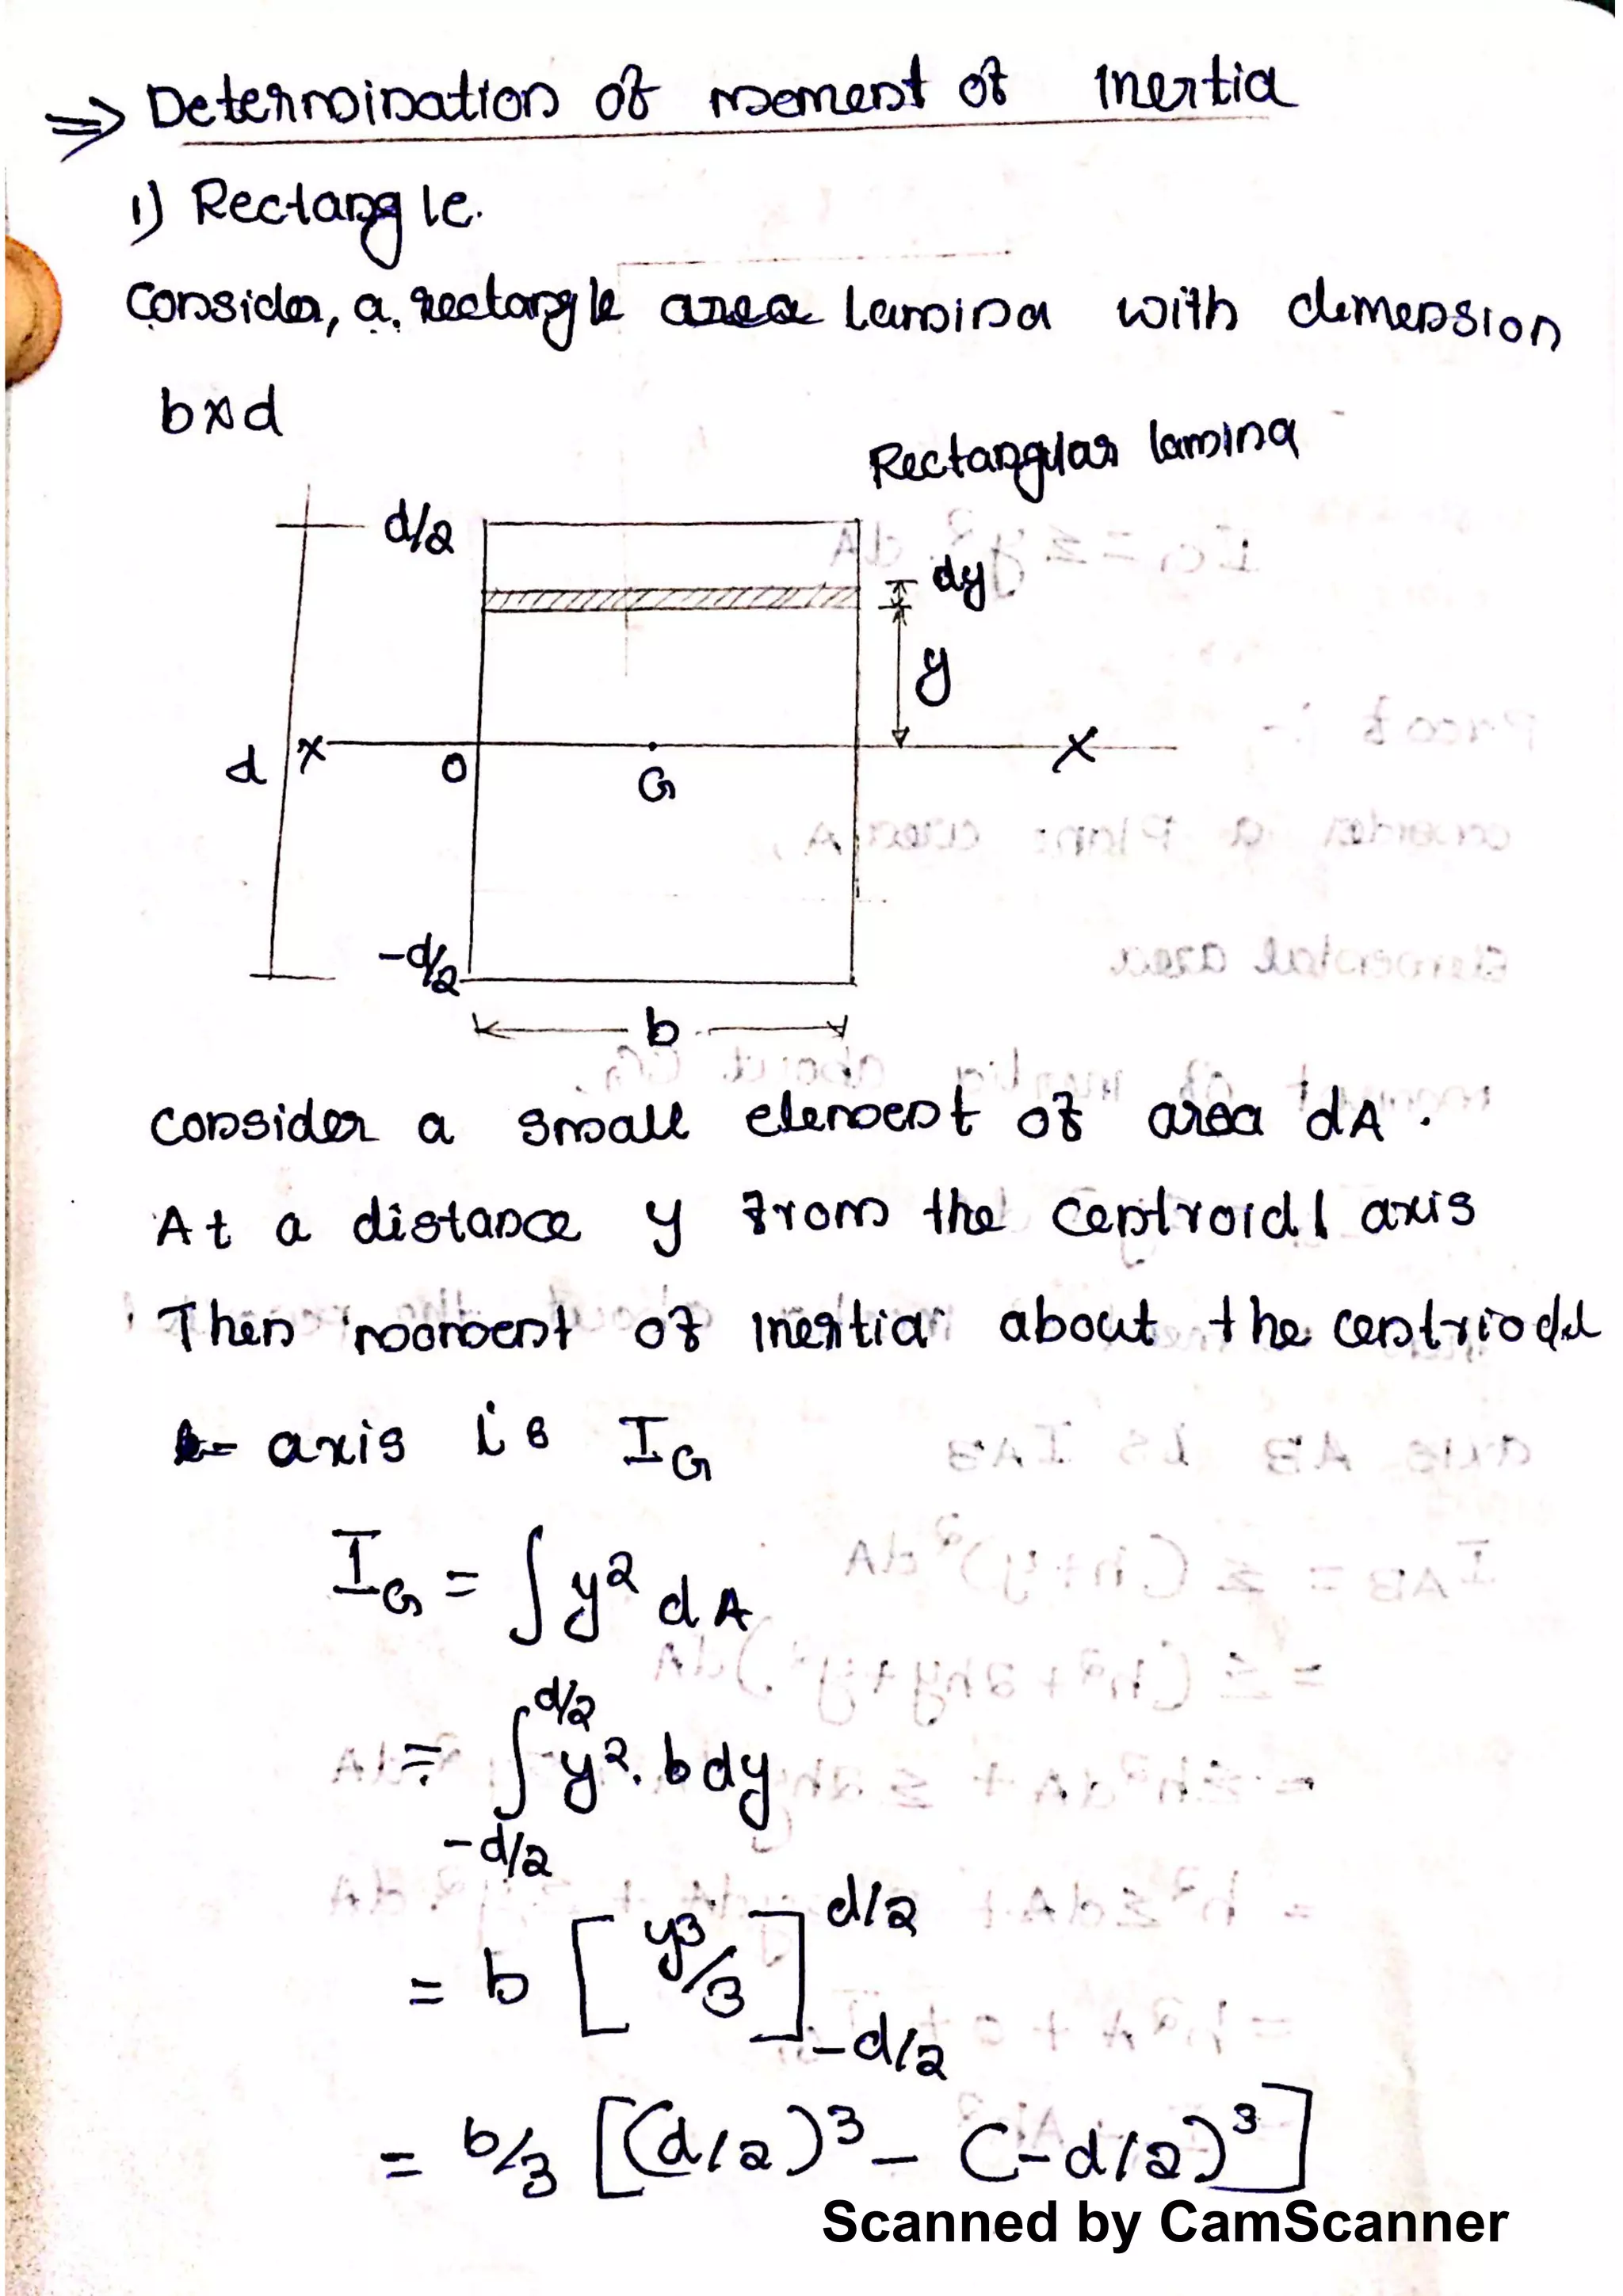 ⇒ Determination of moment of Inertia
1) Rectangle.
Consider, a. rectangle area Lamina with dimension
bxd
Rectangular lamina
d/2
dy
y
d
X
O
G
X
-d/2
b
Consider a small element of area dA.
At a distance y from the Centroidl axis
Then moment of Inertia about the centriodal
axis is I_G
I_G = ∫ y² dA
= ∫ y². b dy
d/2
-d/2
= b [ y³/3 ] d/2
-d/2
= b/3 [(d/2)³ - (-d/2)³]
Scanned by CamScanner